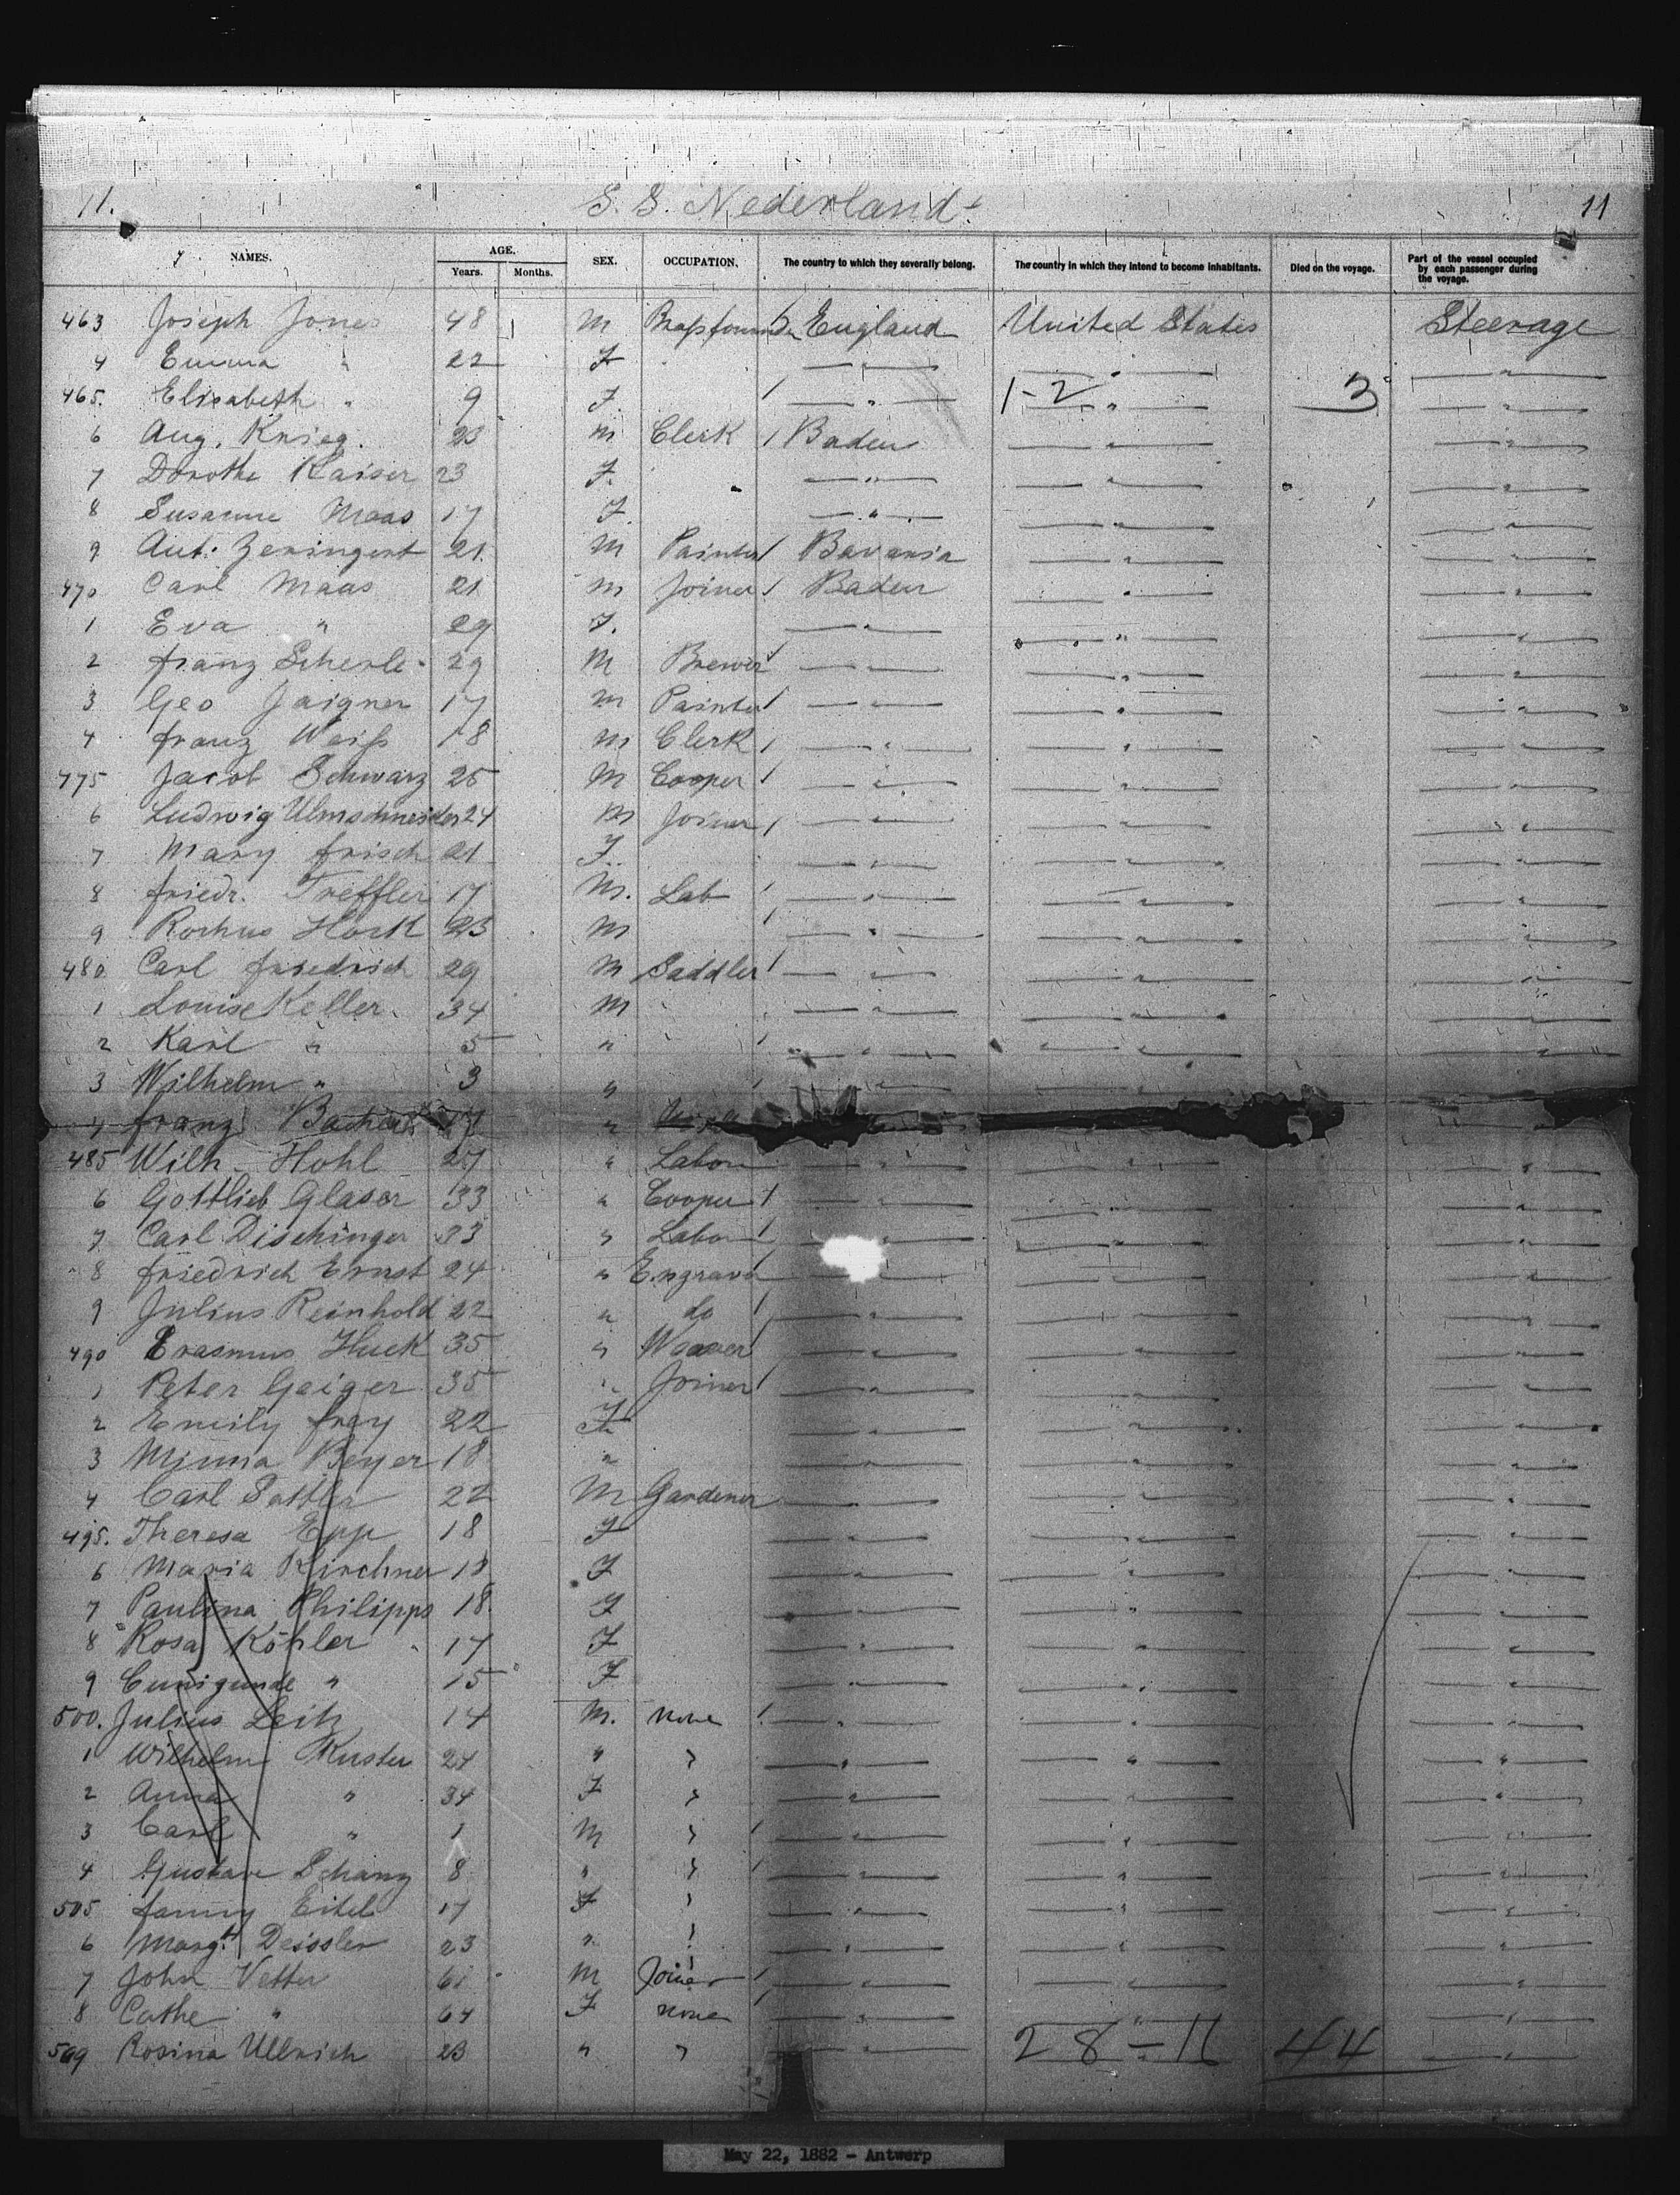 11. S. S. Nederland 11
NAMES. AGE. Years. Months. SEX. OCCUPATION. The country to which they severally belong. The country in which they intend to become inhabitants. Died on the voyage. Part of the vessel occupied by each passenger during the voyage.
463 Joseph Jones 48 M England United States Steerage
4 Emma " 22 F — " — — " — — " —
465. Elisabeth " 9 F. — " — 1-2 — " — 3 — " —
6 Aug. Krieg. 23 M Clerk Baden — " — — " —
7 Dorothe Kaiser 23 F. — " — — " — — " —
8 Susanne Maas 17 F. — " — — " — — " —
9 Ant. 21. M Painter Bavaria — " — — " —
470 Carl Maas 21 M Joiner Baden — " — — " —
1 Eva " 29 F. — " — — " — — " —
2 Franz Scherle 29 M Brewer — " — — " — — " —
3 Geo Jaigner 17 M Painter — " — — " — — " —
4 Franz Weiss 18 M Clerk — " — — " — — " —
475 Jacob Schwarz 25 M Cooper — " — — " — — " —
6 Ludwig Ulmschneider 24 M Joiner — " — — " — — " —
7 Mary Frisch 21 F. — " — — " — — " —
8 Friedr. Treffler 17 M. Lab — " — — " — — " —
9 Rochus Hock 23 M — " — — " — — " —
480 Carl Friedrich 29 M Saddler — " — — " — — " —
1 Louise Keller 34 M — " — — " — — " —
2 Karl " 5 " — " — — " — — " —
3 Wilhelm " 3 " — " — — " — — " —
4 Franz "
485 Wilh. Hohl 27 " Labor — " — — " — — " —
6 Gottlieb Glaser 33 " Cooper — " — — " — — " —
7 Carl Dischinger 33 " Labor — " — — " — — " —
8 Friedrich Ernst 24 " Engraver — " — — " — — " —
9 Julius Reinhold 22 " do — " — — " — — " —
490 Erasmus Huck 35 " Weaver — " — — " — — " —
1 Peter Geiger 35 " Joiner — " — — " — — " —
2 Emily Frey 22 F — " — — " — — " —
3 Minna Beyer 18 " — " — — " — — " —
4 Carl Sattler 22 M Gardener — " — — " — — " —
495. Theresa Epp 18 F — " — — " — — " —
6 Maria Kirchner 18 F — " — — " — — " —
7 Paulina Philipps 18 F — " — — " — — " —
8 Rosa Köhler 17 F — " — — " — — " —
9 Cunigunde " 15 F — " — — " — — " —
500. Julius Leitz 14 M. none — " — — " — — " —
1 Wilhelm Kuster 24 " " — " — — " — — " —
2 Anna " 34 F " — " — — " — — " —
3 Carl " 1 M " — " — — " — — " —
4 Gustave Schanz 8 " " — " — — " — — " —
505 Fanny Eitel 17 F " — " — — " — — " —
6 Margt. Deissler 23 " " — " — — " — — " —
7 John Vetter 61 M Joiner — " — — " — — " —
8 Cathe " 64 F none — " — — " — — " —
509 Rosina Ullrich 23 " " — " — 28-16 44 — " —
May 22, 1882 - Antwerp